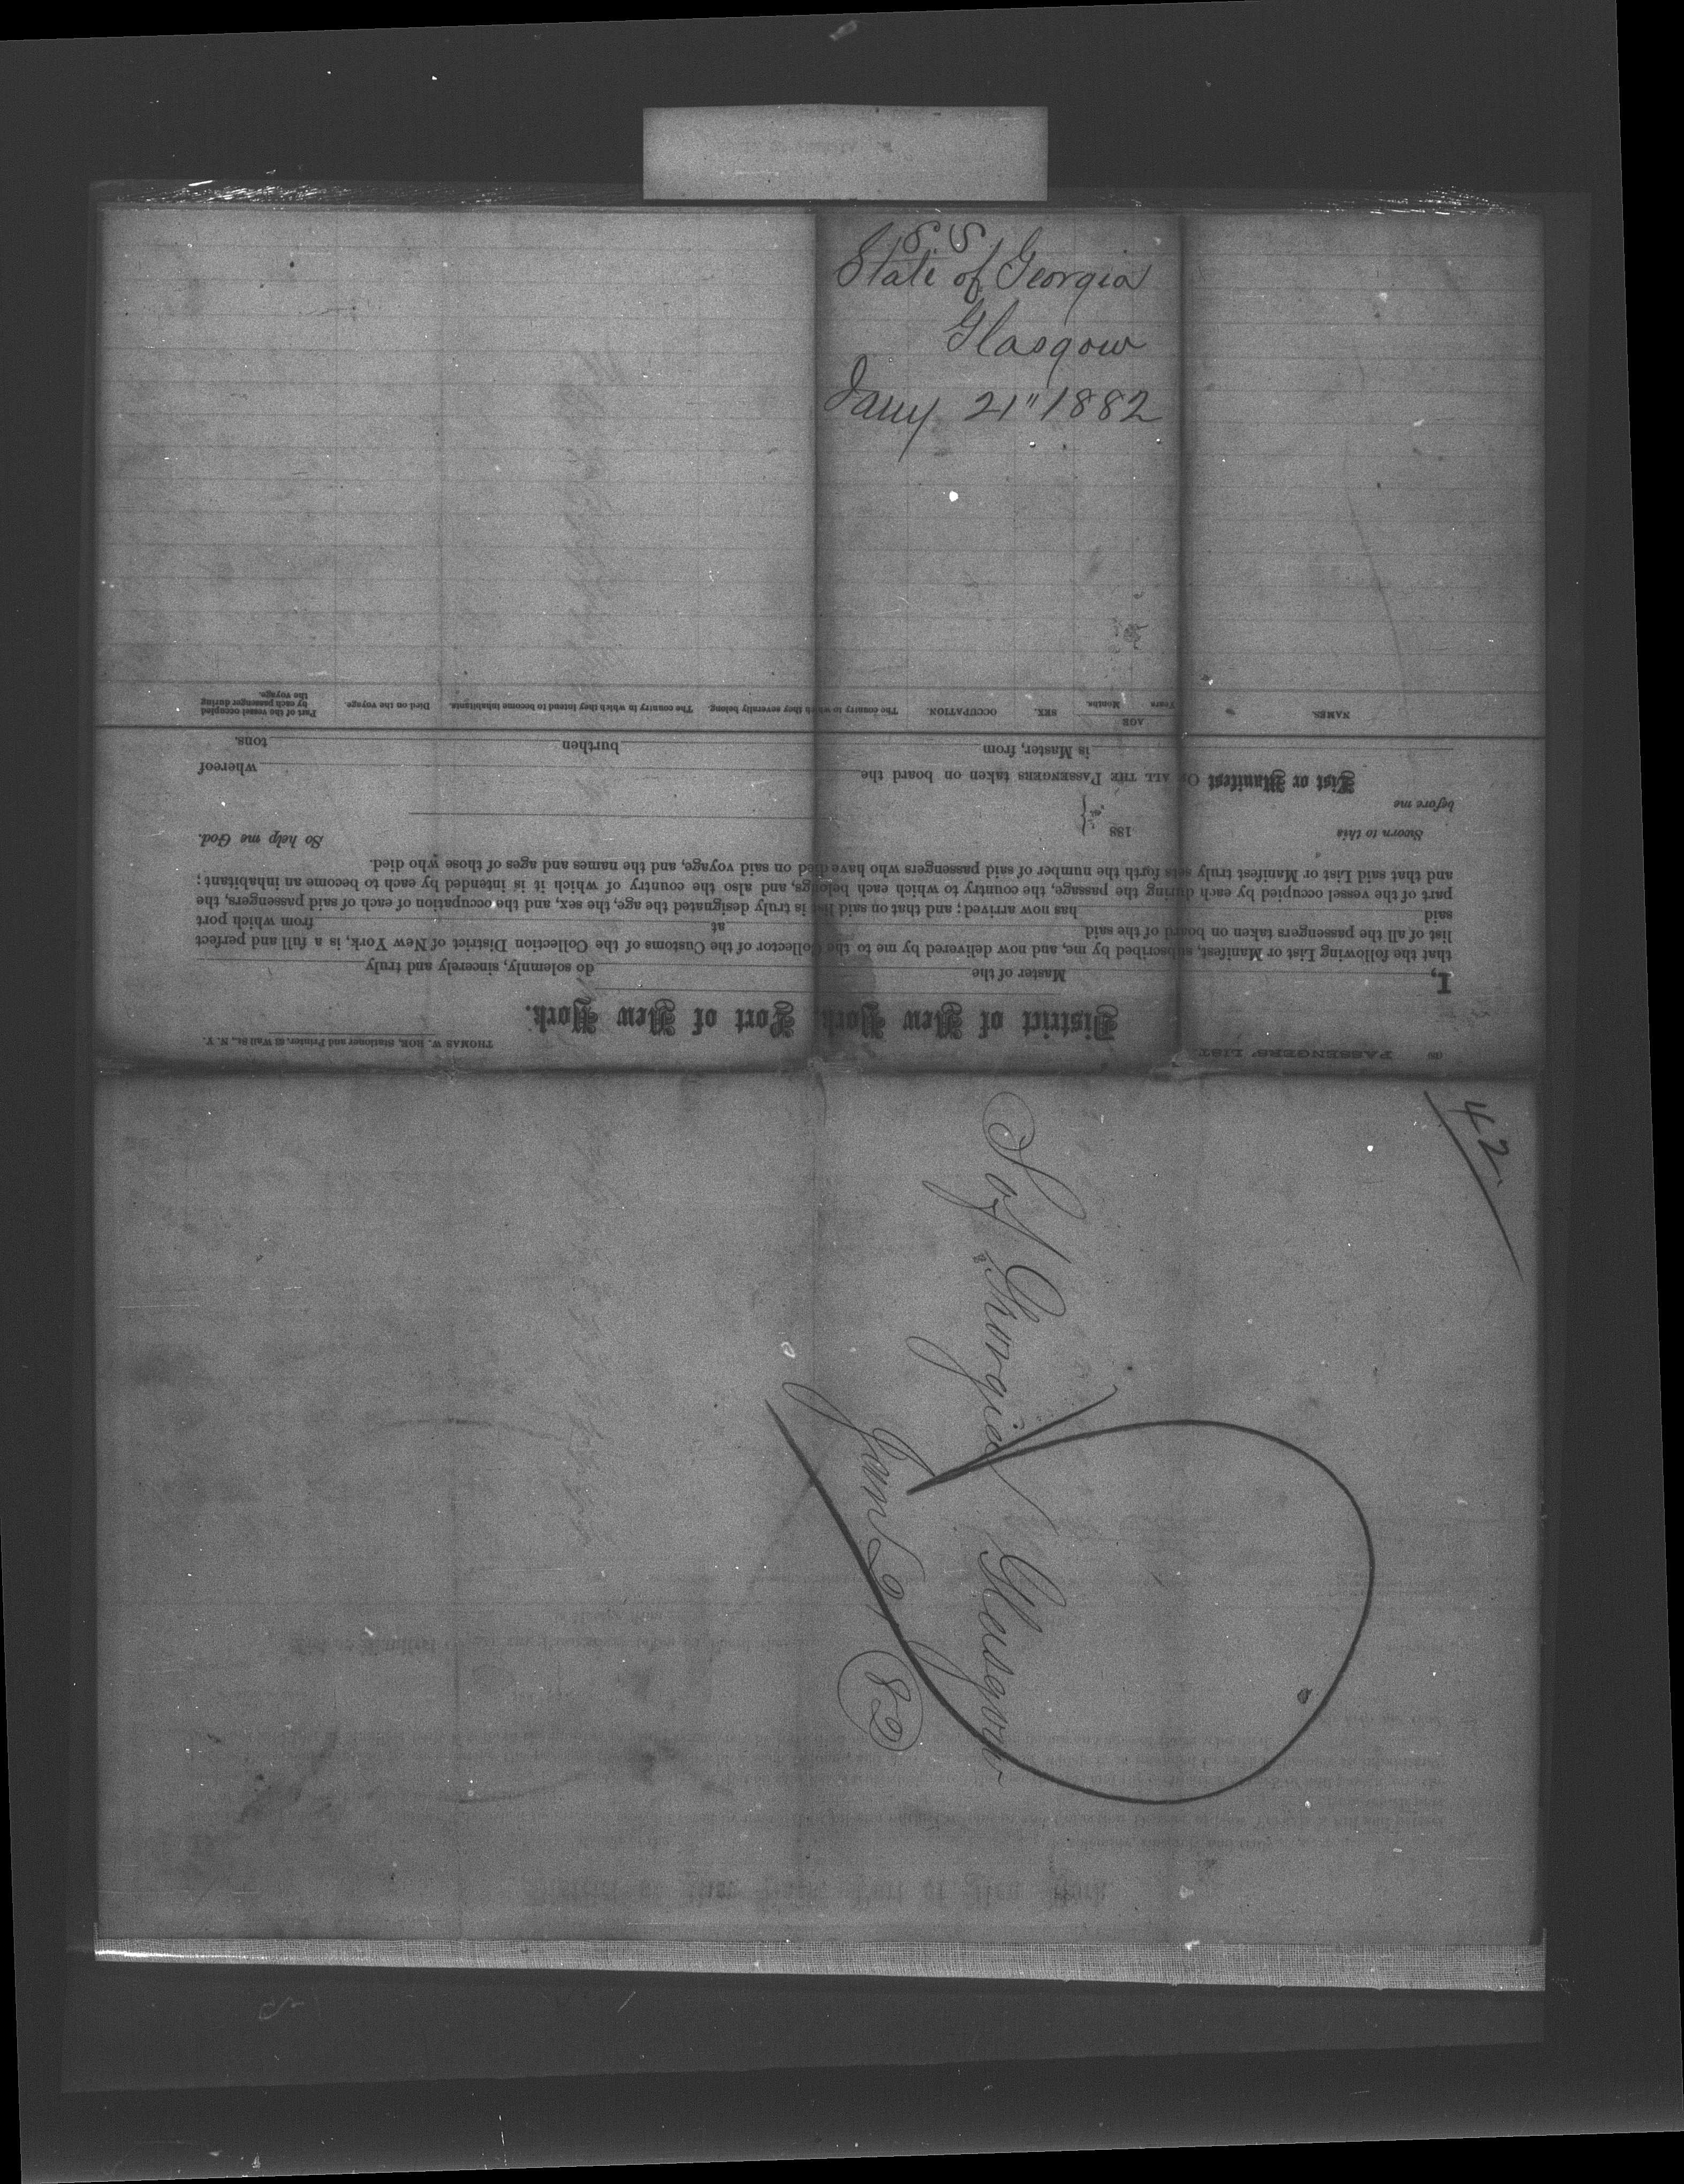 S S
State of Georgia
Glasgow
Jany 21" 1882
(20) PASSENGERS' LIST.
THOMAS W. ROE, Stationer and Printer, Wall St., N. Y.
District of New York, Port of New York.
I, Master of the do solemnly, sincerely and truly
that the following List or Manifest, subscribed by me, and now delivered by me to the Collector of the Customs of the Collection District of New York, is a full and perfect
list of all the passengers taken on board of the said at from which port
said has now arrived; and that on said list is truly designated the age, the sex, and the occupation of each of said passengers, the
part of the vessel occupied by each during the passage, the country to which each belongs, and also the country of which it is intended by each to become an inhabitant;
and that said List or Manifest truly sets forth the number of said passengers who have died on said voyage, and the names and ages of those who died.
So help me God.
Sworn to this 188
before me
List or Manifest OF ALL THE PASSENGERS taken on board the whereof
is Master, from burthen tons.
NAMES. AGE Years Months. SEX. OCCUPATION. The country to which they severally belong. The country in which they intend to become inhabitants. Died on the voyage. Part of the vessel occupied by each passenger during the voyage.
42
S of Georgia Glasgow
Jan 21 82